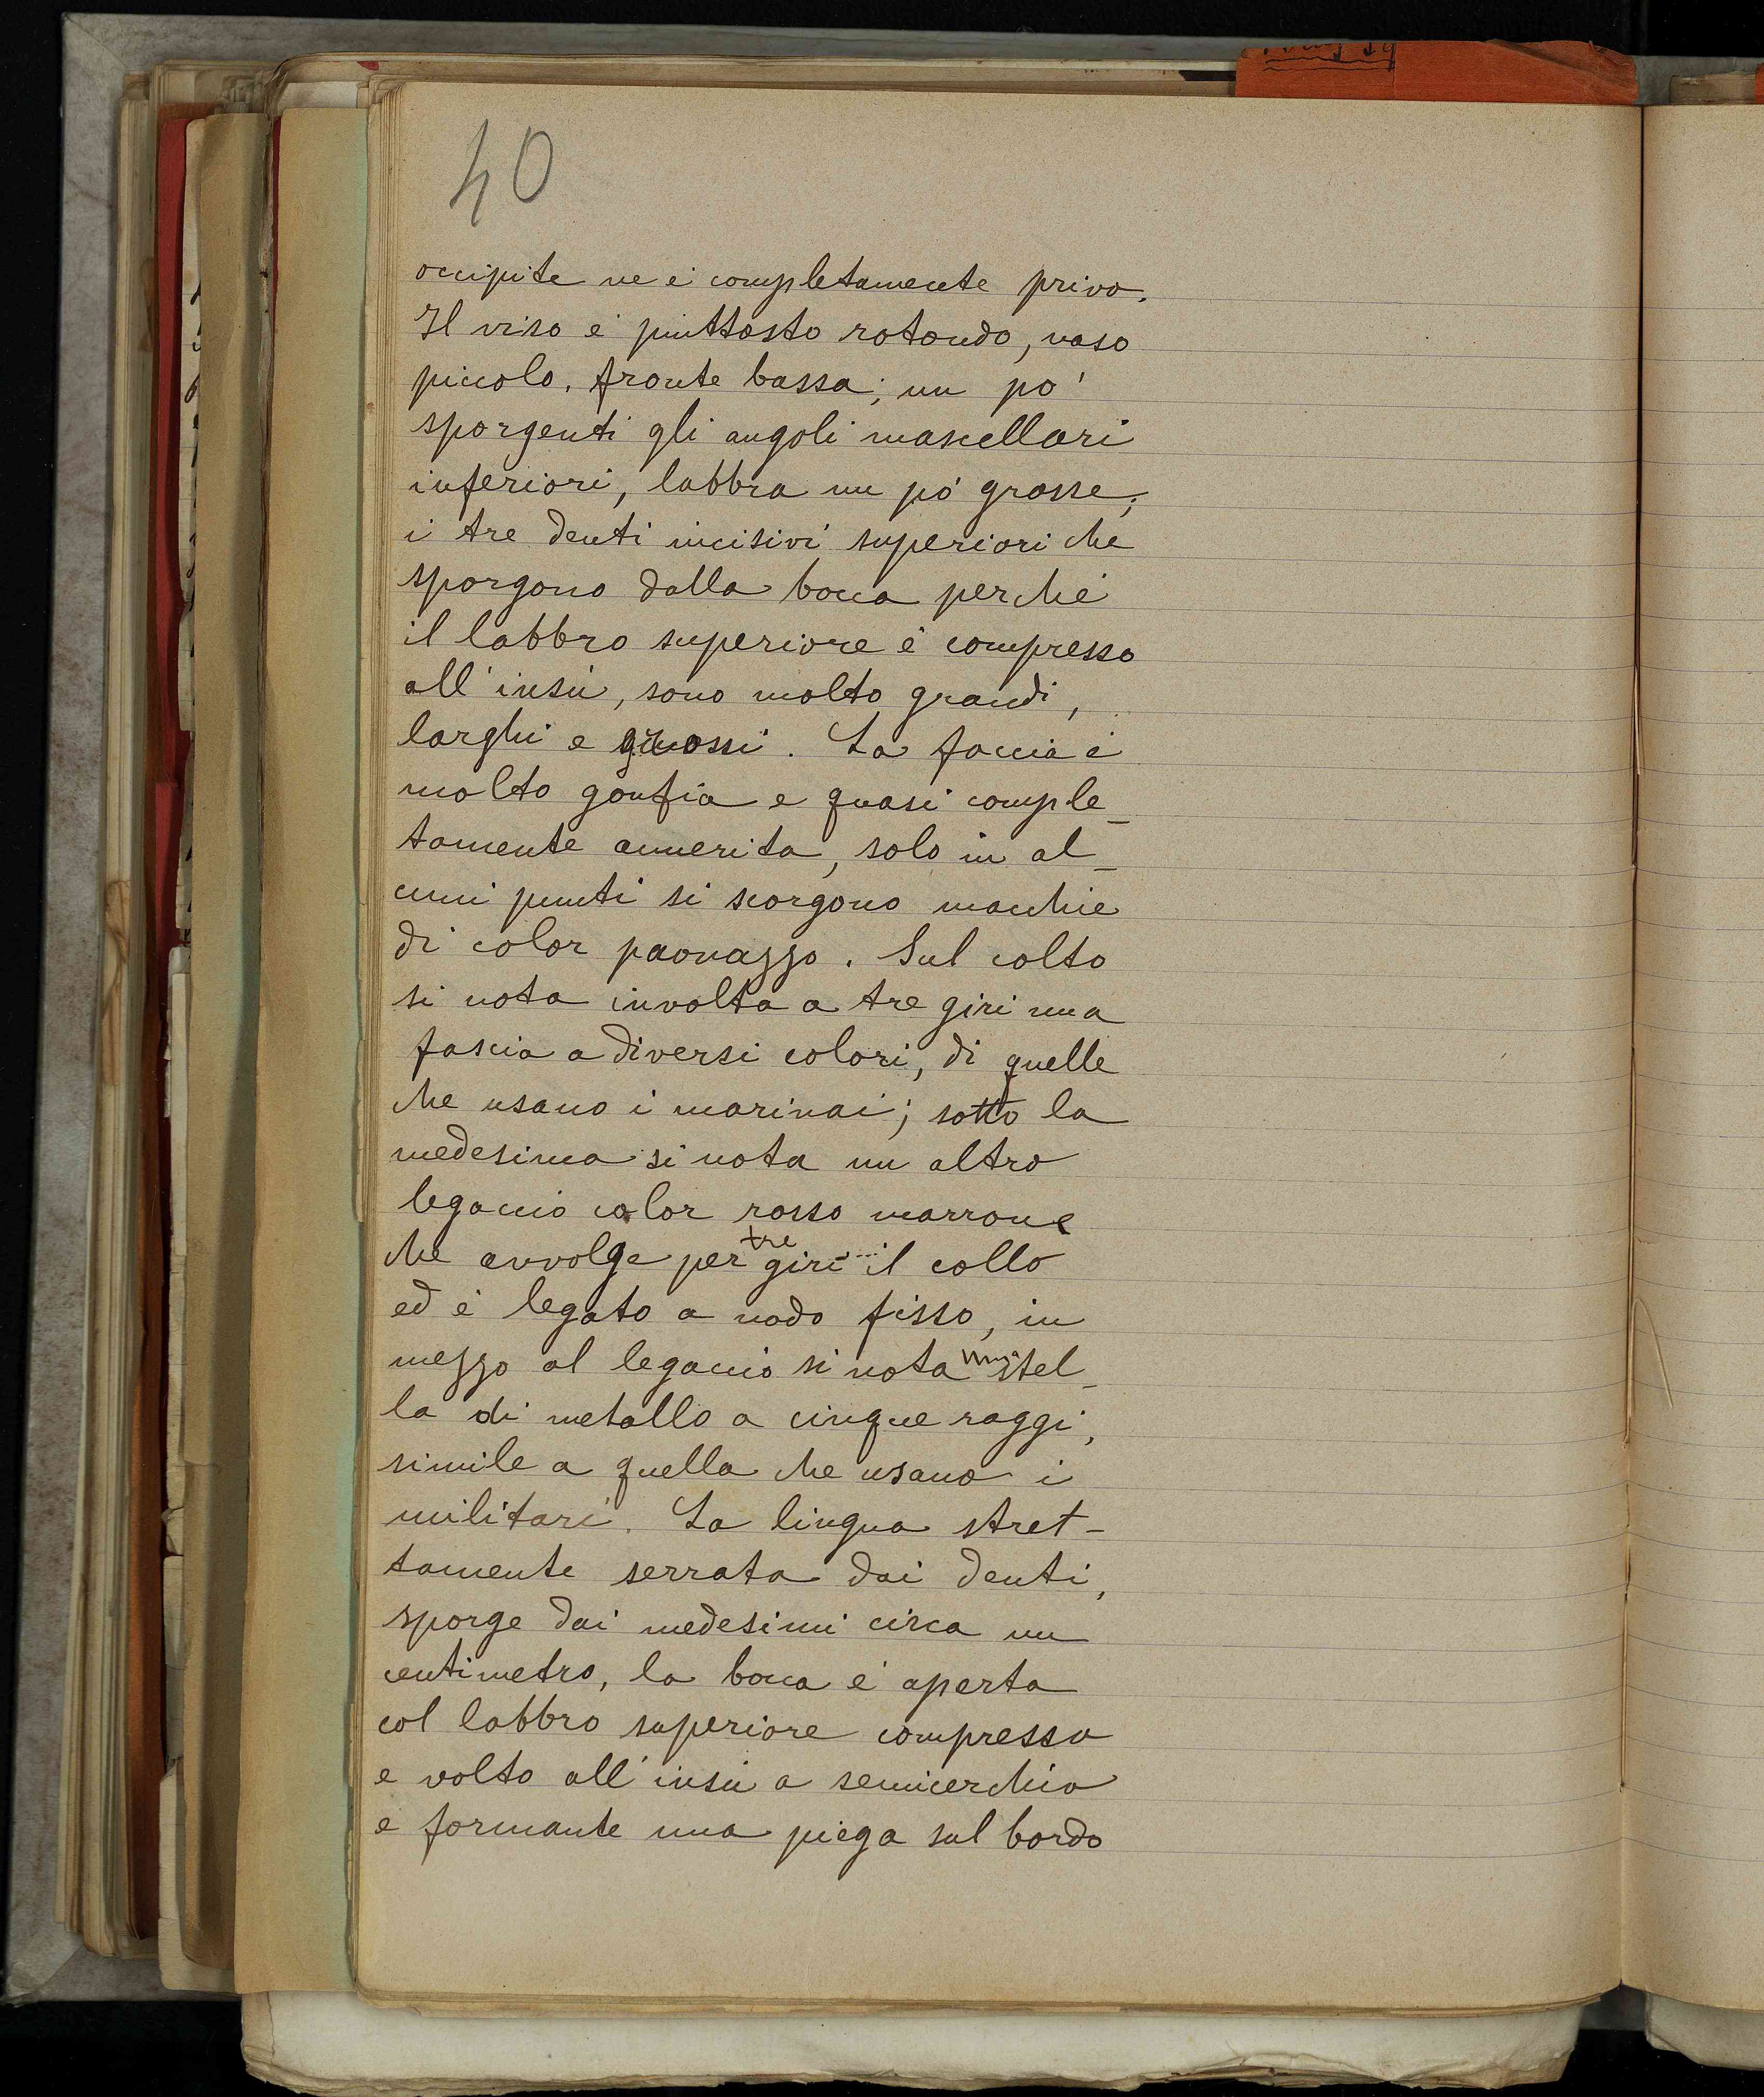 40
occipite ne è completamente privo.
Il viso è piuttosto rotondo, naso
piccolo, fronte bassa; un po'
sporgenti gli angoli mascellari
inferiori, labbra un pò grosse;
i tre denti incisivi superiori che
sporgono dalla bocca perchè
il labbro superiore è compresso
all'insù, sono molto grandi,
larghi e grossi. La faccia è
molto gonfia e quasi comple_
tamente annerita, solo in al_
cuni punti si scorgono macchie
di color paonazzo. Sul collo
si nota involta a tre giri una
fascia a diversi colori, di quelle
che usano i marinai; sotto la
medesima si nota un altro
legaccio color rosso marrone
che avvolge per tre giri il collo
ed è legato a nodo fisso, in
mezzo al legaccio si nota una stel_
la di metallo a cinque raggi,
simile a quella che usano i
militari. La lingua stret-
tamente serrata dai denti,
sporge dai medesimi circa un
centimetro, la bocca è aperta
col labbro superiore compresso
e volto all'insù a semicerchio
e formante una piega sul bordo